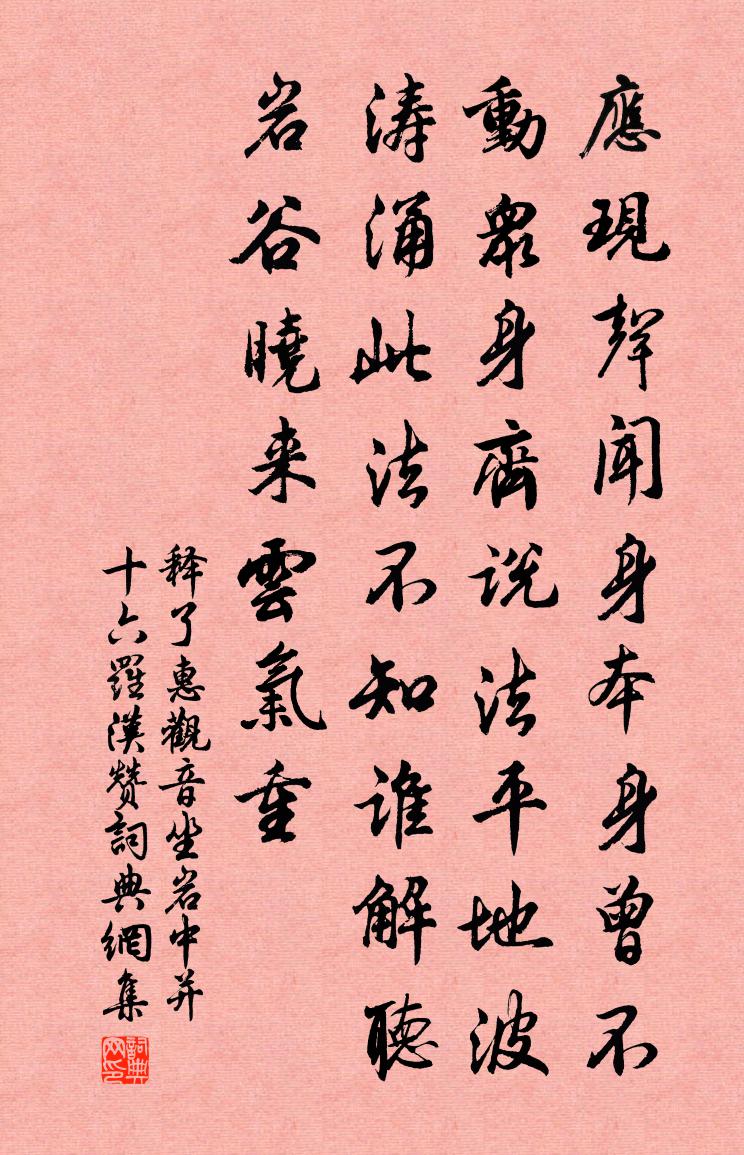 應現聲聞身本身曾不
動衆身齊説法平地波
涛涌此法不知誰解聽
岩谷曉来雲氣重
释了惠觀音坐岩中并
十六羅漢赞詞典網集
詞典
网印